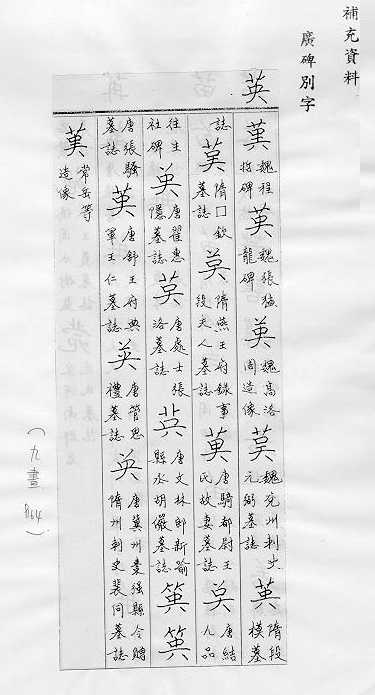 補充資料
廣碑別字
英
英 魏程哲碑 英 魏張猛龍碑 英 魏高洛周造像 英 魏兗州刺史元弼墓誌 英 隋段模墓
誌 英 隋□欽墓誌 英 隋燕王府錄事段夫人墓誌 英 唐騎都尉王氏故妻墓誌 英 唐結九品
往生社碑 英 唐翟惠隱墓誌 英 唐處士張洛墓誌 英 唐文林郎新喻縣丞胡儼墓誌
唐張騷墓誌 英 唐舒王府典軍王仁墓誌 英 唐管思禮墓誌 英 唐冀州棗強縣令贈隋州刺史裴同墓誌
英 常岳等造像
(九畫 P64)